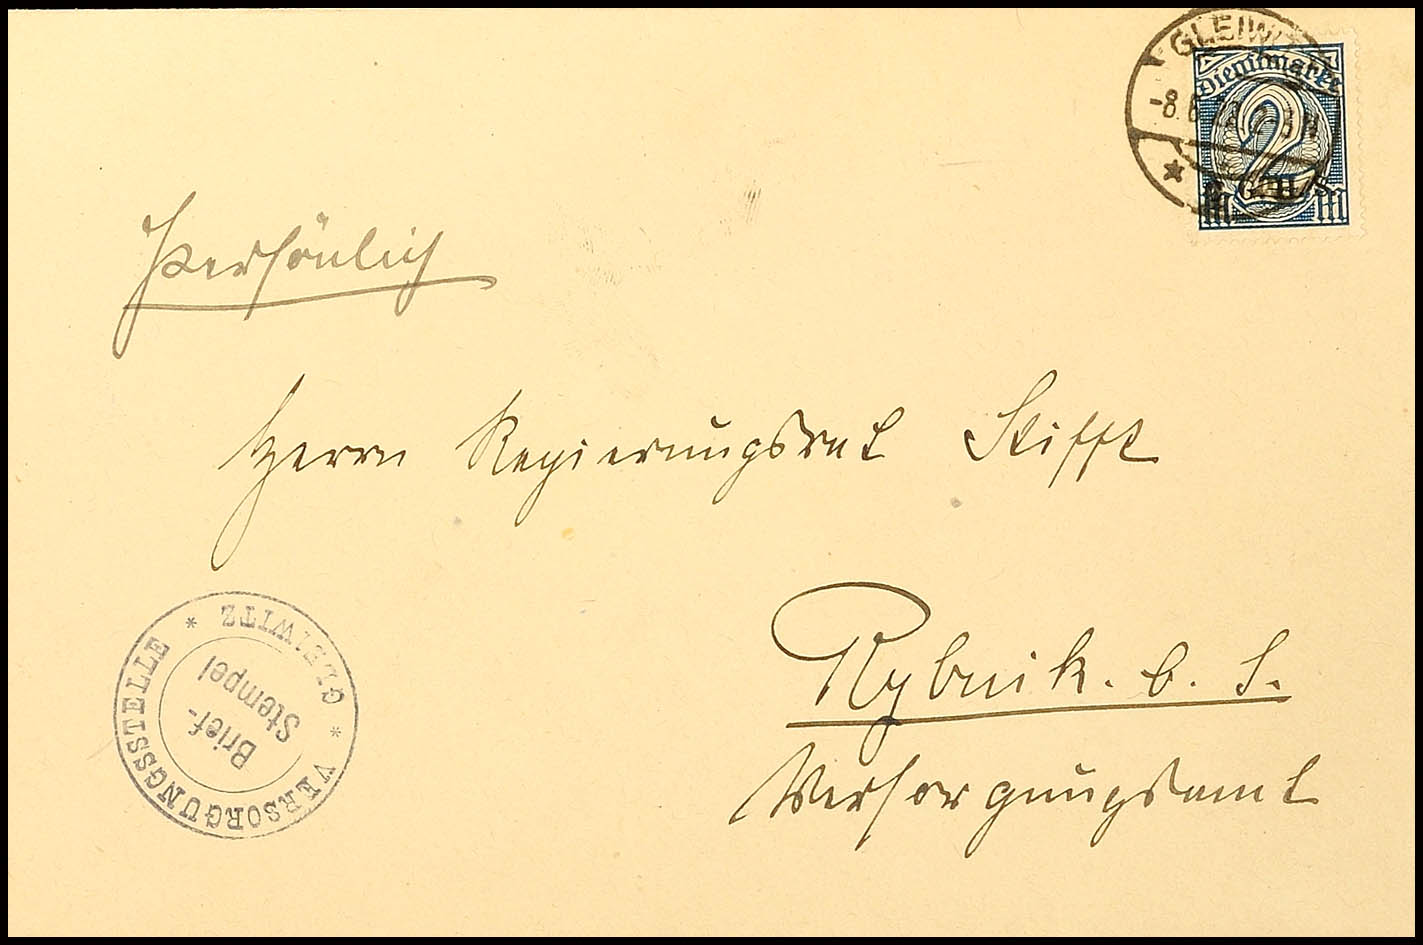 GLEIWITZ
Dienstmarke
-8.6.20 2-3 N
2
C.G.H.S.
Persönlich
Herrn Regierungsrat Stifft
Rybnik. b. S.
Versorgungsamt
* VERSORGUNGSSTELLE * GLEIWITZ
Brief-
Stempel